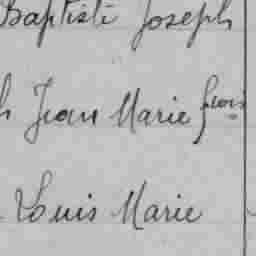 Baptiste Joseph
h Jean Marie fçois
Louis Marie